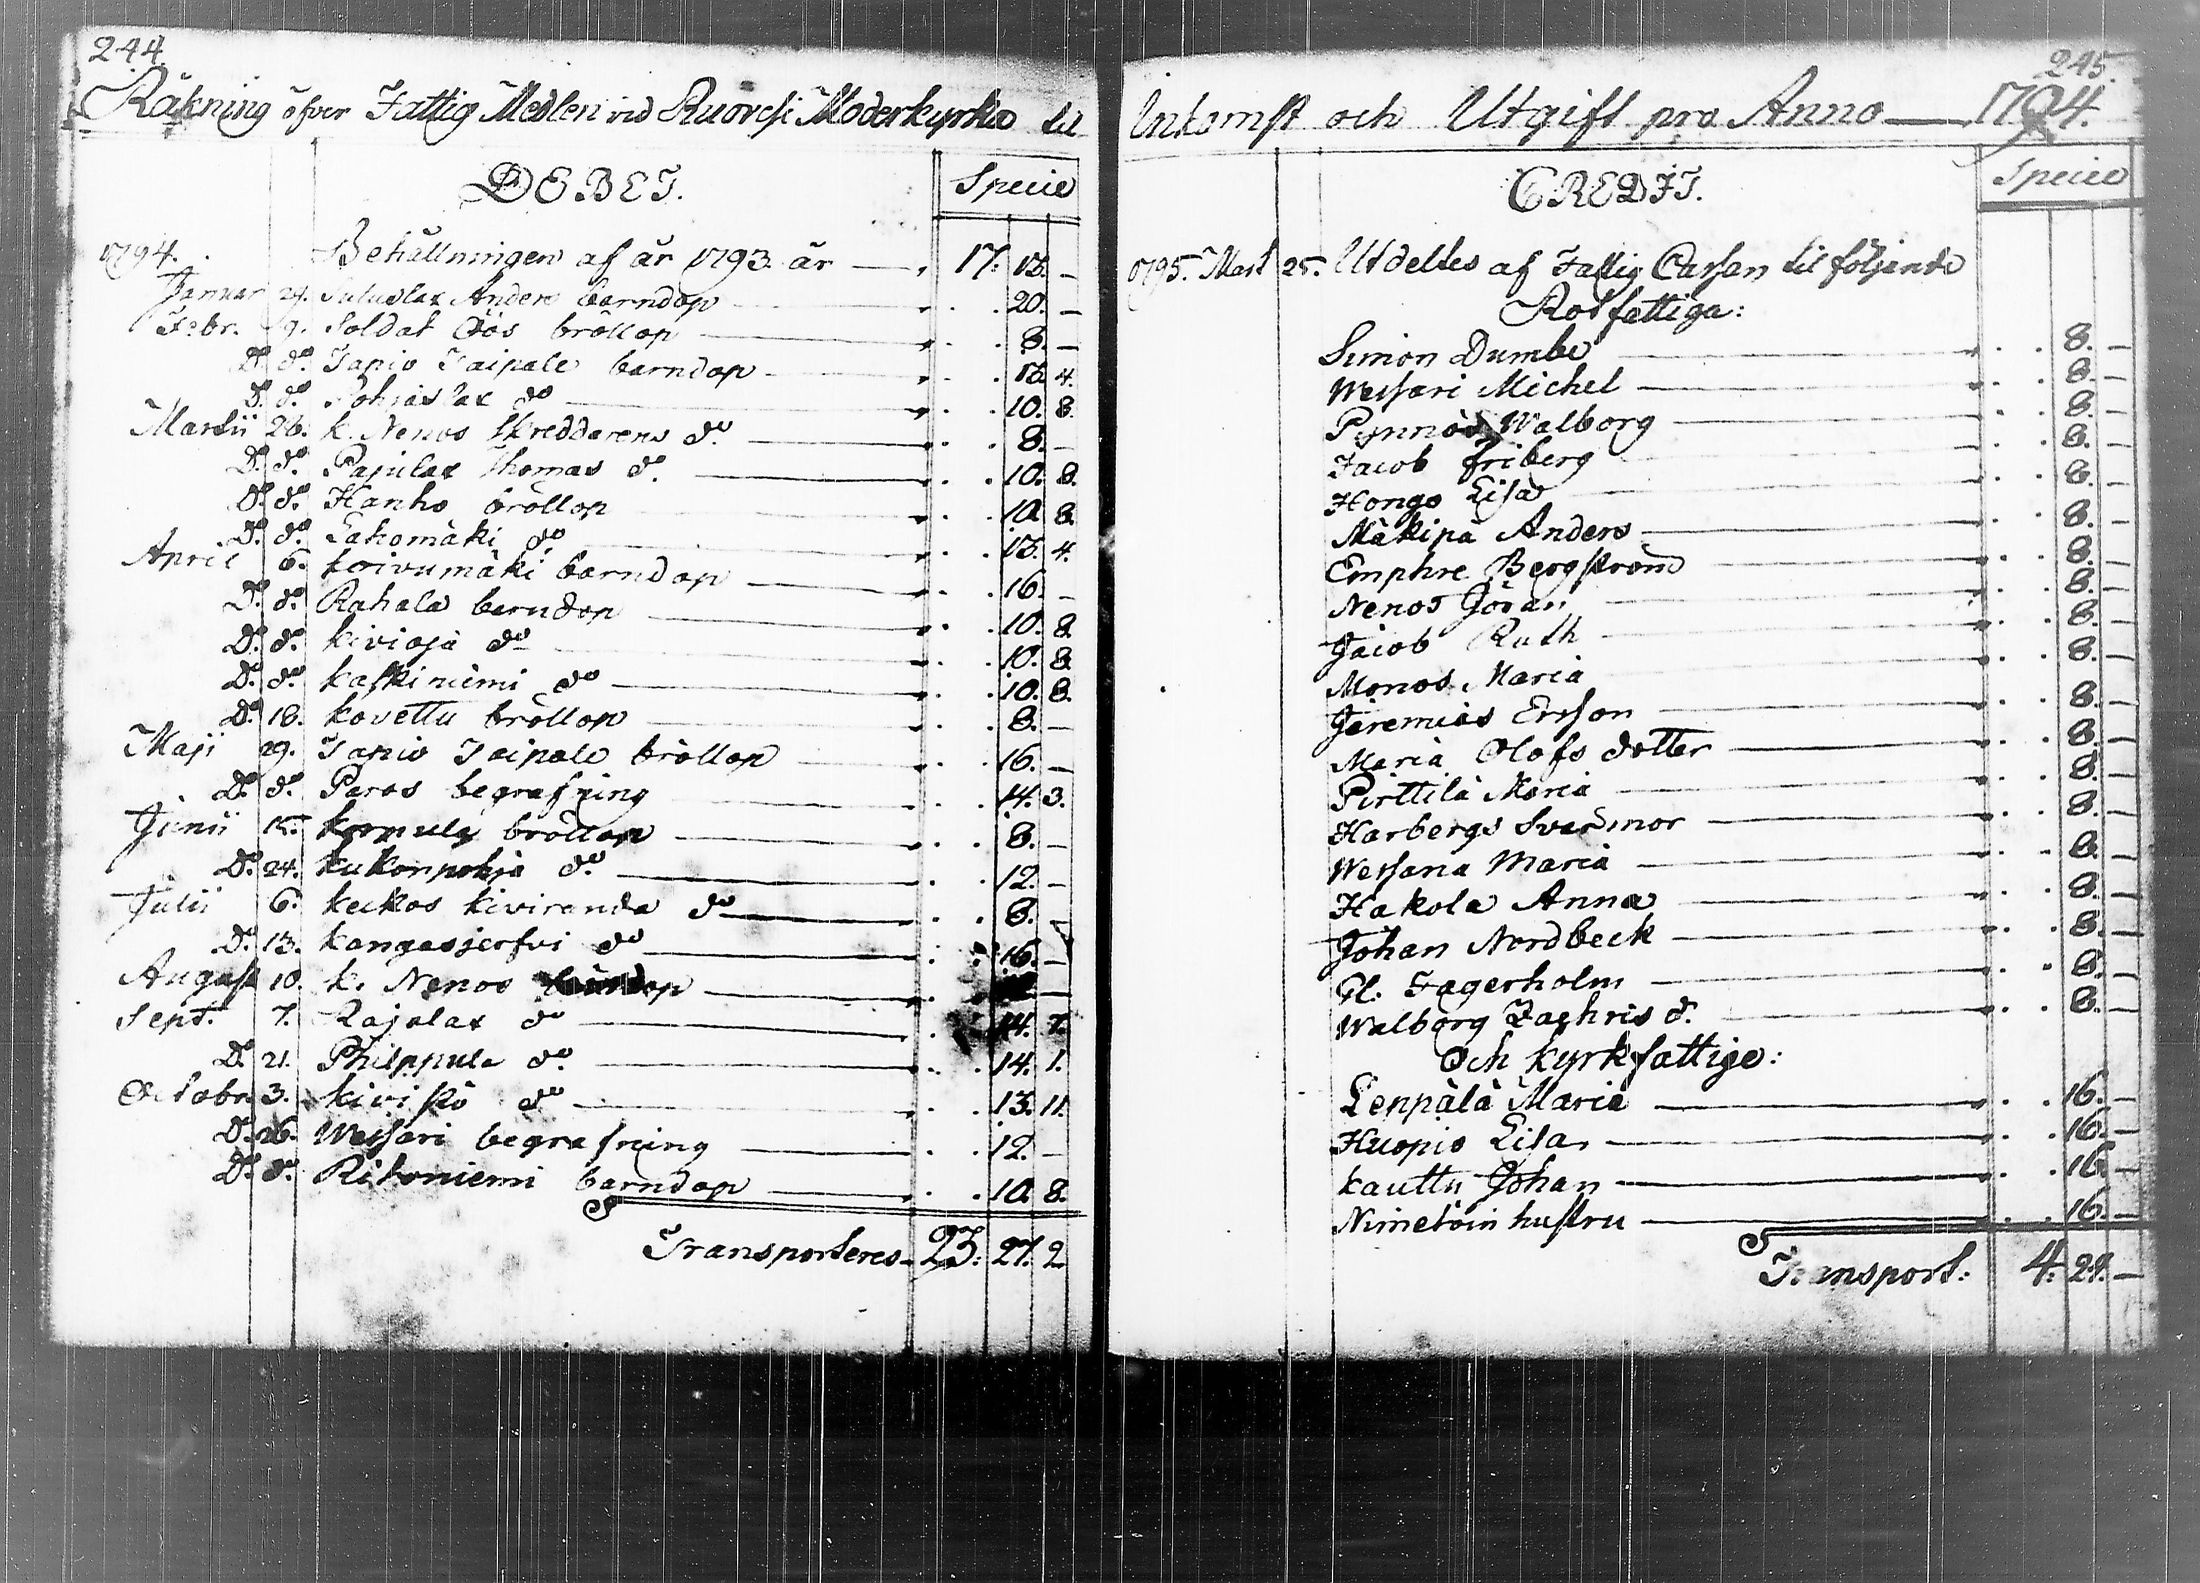 244.
Räkning öfver Fattig Medlen vid Ruovesi Moderkyrka til
DEBET.
Specie
1794. Behållningen af år 1793. är — 17. 13. —
Januar 24. Anders barndop — 20. —
Febr. 9. Soldat Öös bröllop — 8. —
D.o d.o Tapio Taipale barndop — 13. 4.
D.o d.o Pohjaslax d.o — 10. 8.
Martii 26. k. Nenos skreddarens d.o — 8. —
D.o d.o Pajulax Thomas d.o — 10. 8.
D.o d.o Hanho bröllop — 10. 8.
D.o d.o Lahomäki d.o — 13. 4.
April 6. koivumäki barndop — 16. —
D.o d.o Rahala barndop — 10. 8.
D.o d.o kivioja d.o — 10. 8.
D.o d.o kaskiniemi d.o — 10. 8.
D.o 18. kovettu bröllop — 8. —
Maji 29. Tapio Taipale bröllop — 16. —
D.o d.o Paros begrafning — 14. 3.
Junii 15. korpula bröllop — 8. —
D.o 24. kukonpohja d.o — 12. —
Julii 6. keikos kiviranda d.o — 8. —
D.o 13. kangasjerfvi d.o — 16. —
August 10. k. Nenos — —
Sept. 7. Rajalax d.o — 14. 7.
D.o 21. Philppula d.o — 14. 1.
Octobr. 3. kivistö d.o — 13. 11.
D.o 26. Wessari begrafning — 12. —
D.o d.o Ritoniemi barndop — 10. 8.
Transporteres — 23. 27. 2.
245.
Inkomst och Utgift pro Anno — 1794.
CREDIT.
Specie
1795. Mart 25. Utdeltes af Fattig Cassan til följande
Rotfattiga:
Simon Dumbe — 8. —
Wessari Michel — 8. —
Pynnös Walborg — 8. —
Jacob friberg — 8. —
Hongo Lisa — 8. —
Mäkipä Anders — 8. —
Emphre Bergström — 8. —
Nenos Göran — 8. —
Jacob Ruth — 8. —
Monos Maria — 8. —
Jeremias Ersson — 8. —
Maria Olofs dotter — 8. —
Pirttilä Maria — 8. —
Harbergs Svärmor — 8. —
Wessana Maria — 8. —
Hakola Anna — 8. —
Johan Nordbeck — 8. —
Gl. Fagerholm — 8. —
Walborg Zachris d. — 8. —
Och kyrkfattige:
Lenpälä Maria — 16. —
Huopio Lisa — 16. —
kauttu Johan — 16. —
Nimetöin hustru — 16. —
Transport: 4. 24. —